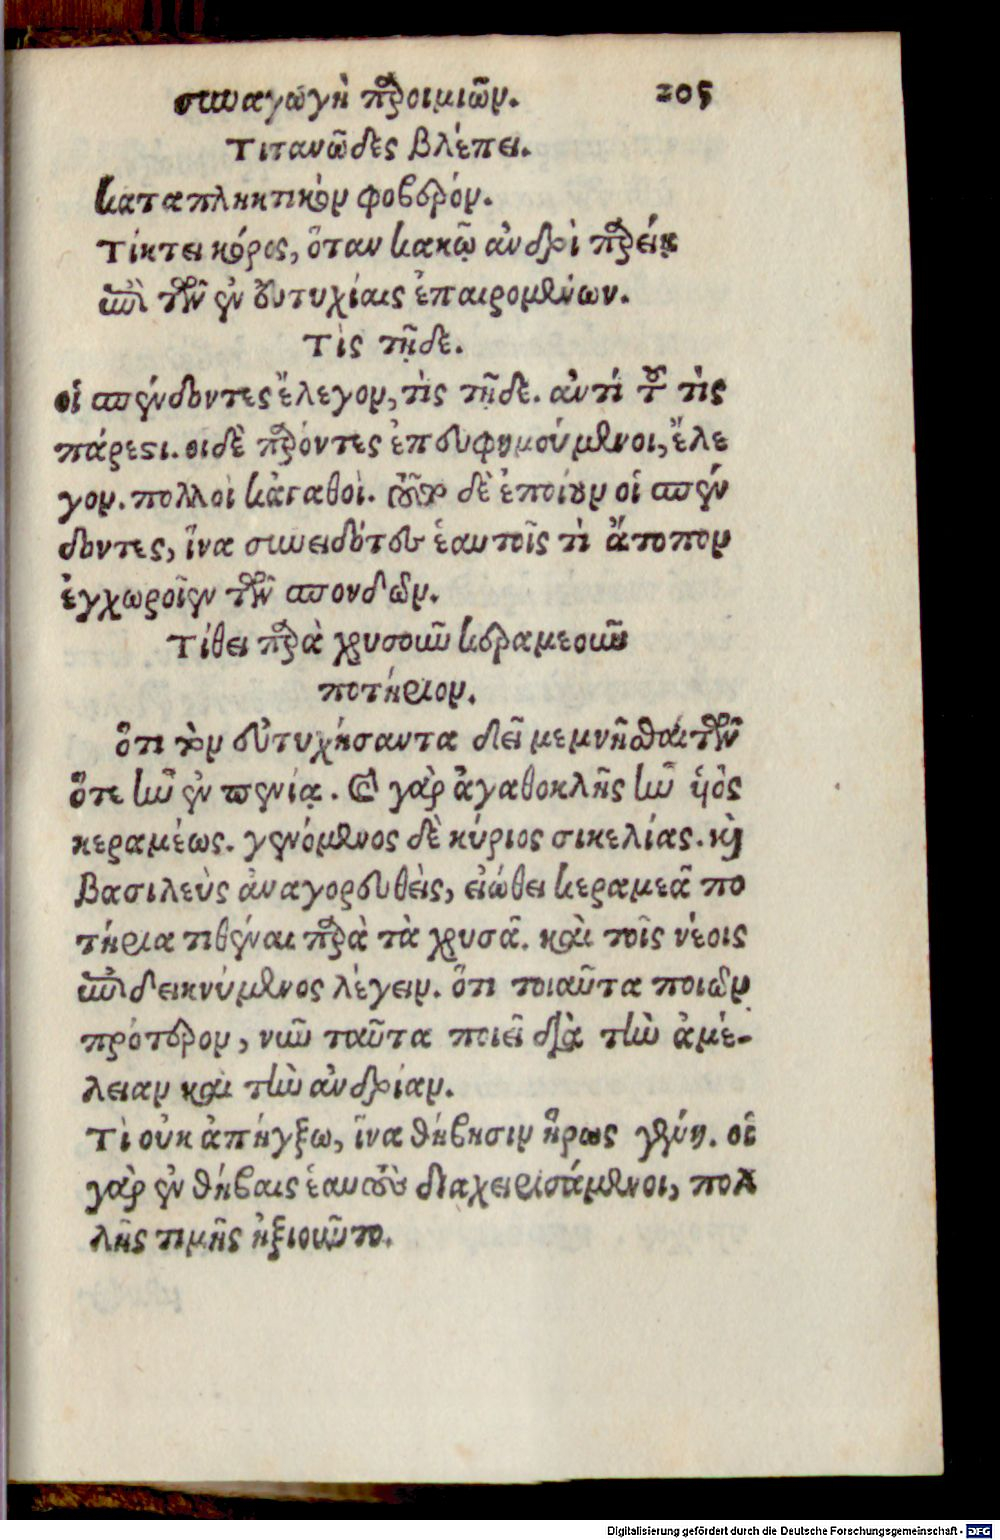 συναγωγὴ παροιμιῶν. 205
Τιτανῶδες βλέπει.
καταπληκτικὸν φοβερόν.
Τίκτει κόρος, ὅταν κακῷ ἀνδρὶ παρείη
ἐπὶ τῶν ἐν εὐτυχίαις ἐπαιρομένων.
Τὶς τῇδε.
οἱ σπένδοντες ἔλεγον, τὶς τῇδε. ἀντὶ τοῦ τὶς
πάρεστι. οι δὲ παρόντες ἐπευφημούμενοι, ἔλε
γον. πολλοὶ κἀγαθοὶ. τοῦτο δὲ ἐποίουν οἱ σπέν
δοντες, ἵνα συνειδότες ἑαυτοῖς τὶ ἄτοπον
ἐγχωροῖεν τῶν σπονδῶν.
Τίθει παρὰ χρυσοῦν κεραμεοῦν
ποτήριον.
ὅτι τὸν εὐτυχήσαντα δεῖ μεμνῆσθαι τῶν
ὅτε ἦν ἐν πενίᾳ. Καὶ γὰρ ἀγαθοκλῆς ἦν ὑὸς
κεραμέως. γενόμενος δὲ κύριος σικελίας. καὶ
βασιλεὺς ἀναγορευθεὶς, εἰώθει κεραμεᾶ πο
τήρια τιθέναι παρὰ τὰ χρυσᾶ. καὶ τοῖς νέοις
ἐπιδεικνύμενος λέγειν. ὅτι τοιαῦτα ποιῶν
πρότερον, νῦν ταῦτα ποιεῖ διὰ τὴν ἀμέ-
λειαν καὶ τὴν ἀνδρίαν.
Τὶ οὐκ ἀπήγξω, ἵνα θήβησιν ἥρως γένῃ. οἱ
γὰρ ἐν θήβαις ἑαυτοὺς διαχειρισάμενοι, πολ
λῆς τιμῆς ἠξιοῦντο.